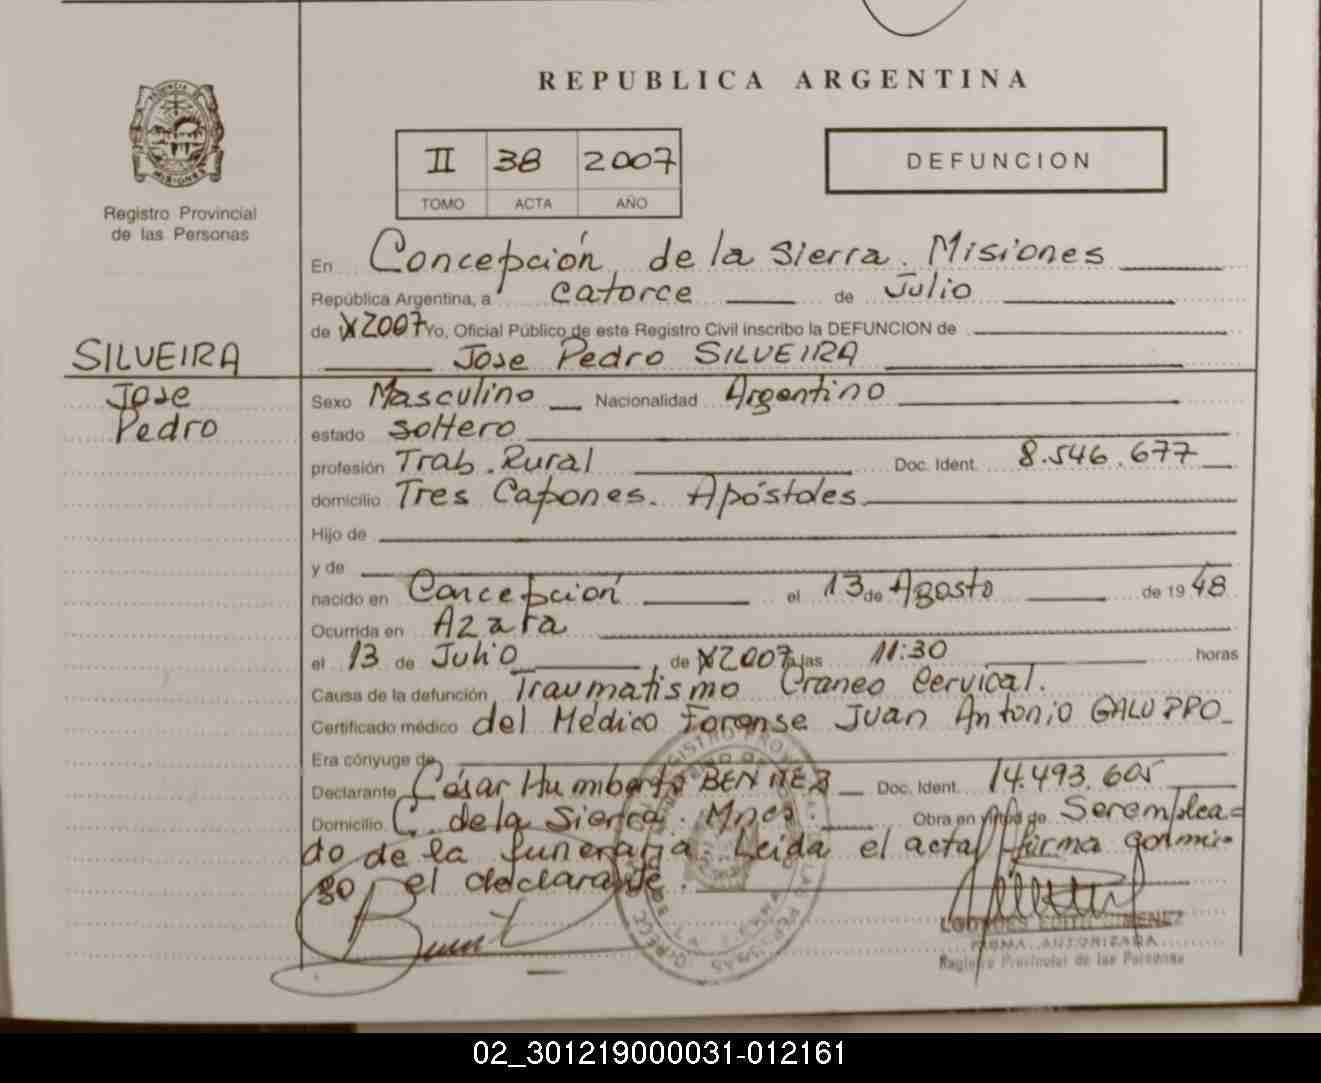 REPUBLICA ARGENTINA
II 38 2007
TOMO ACTA AÑO
DEFUNCION
Registro Provincial
de las Personas
En Concepción de la Sierra. Misiones
República Argentina, a catorce de Julio
de 2007 Yo, Oficial Público de este Registro Civil inscribo la DEFUNCION de
SILVEIRA
Jose
Pedro
Jose Pedro SILVEIRA
Sexo Masculino Nacionalidad Argentino
estado soltero
profesión Trab. Rural Doc. Ident. 8.546.677
domicilio Tres Capones. Apóstoles
Hijo de
y de
nacido en Concepción el 13 de Agosto de 1948
Ocurrida en Azara
el 13 de Julio de 2007 a las 11:30 horas
Causa de la defunción Traumatismo Craneo Cervical.
Certificado médico del Médico Forense Juan Antonio GALUPPO
Era cónyuge de
Declarante César Humberto Doc. Ident. 14.493.605
Domicilio C. de la Sierra. Mnes. Obra en de Ser emplea=
do de la funeraria. Leida el acta firma conmi-
go el declarante.
JIMENEZ
FIRMA AUTORIZADA
Registro Provincial de las Personas
02_301219000031-012161